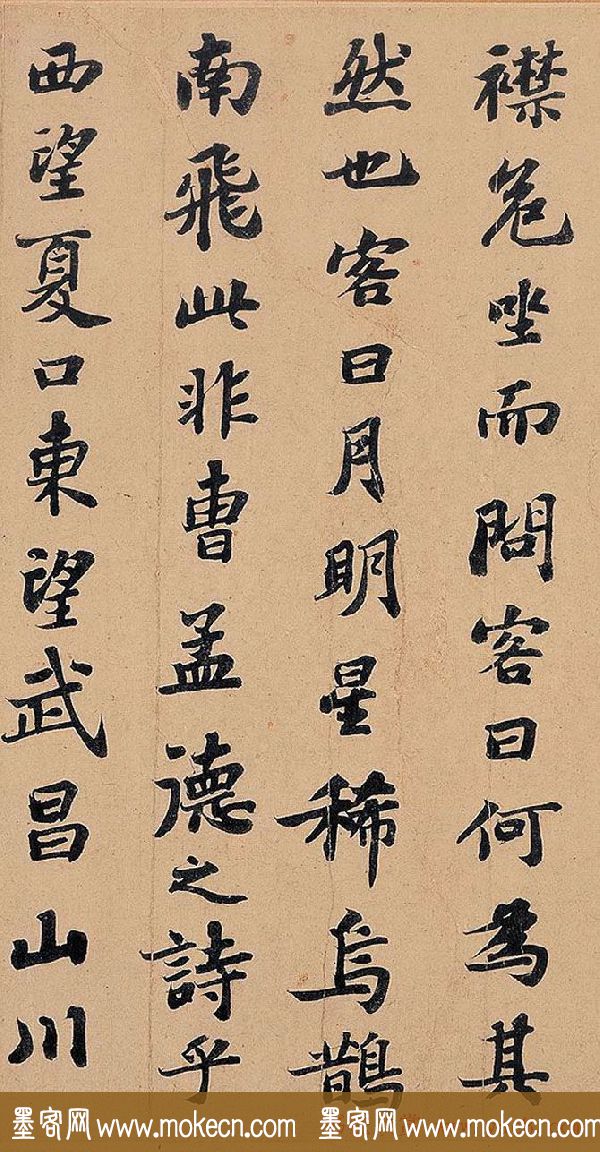 襟危坐而問客曰何為其
然也客曰月明星稀烏鵲
南飛此非曹孟德之詩乎
西望夏口東望武昌山川
墨客网 www.mokecn.com 墨客网 www.mokecn.com